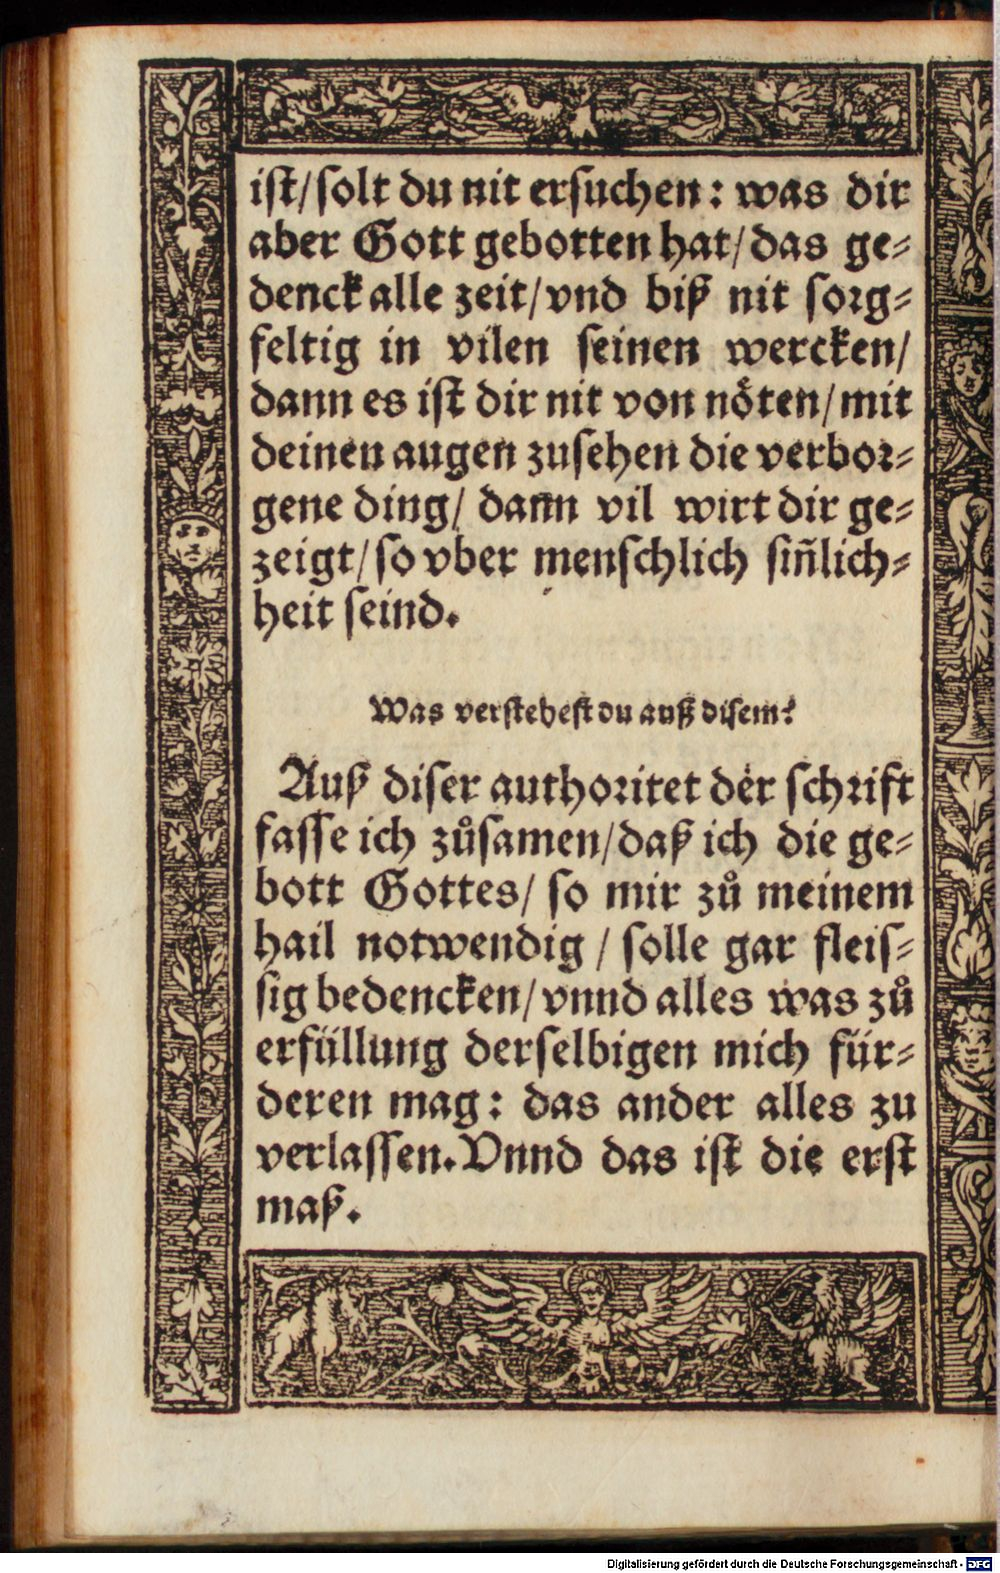 ist/ solt du nit ersuchen: was dir
aber Gott gebotten hat/ das ge-
denck alle zeit/ vnd biß nit sorg-
feltig in vilen seinen wercken/
dann es ist dir nit von nöten/ mit
deinen augen zusehen die verbor-
gene ding/ dann vil wirt dir ge-
zeigt/ so vber menschlich sin̄lich-
heit seind.
Was verstehest du auß disem?
Auß diser authoritet der schrift
fasse ich zůsamen/ daß ich die ge-
bott Gottes/ so mir zů meinem
hail notwendig / solle gar fleis-
sig bedencken/ vnnd alles was zů
erfüllung derselbigen mich für-
deren mag: das ander alles zu
verlassen. Vnnd das ist die erst
maß.
Digitalisierung gefördert durch die Deutsche Forschungsgemeinschaft - DFG